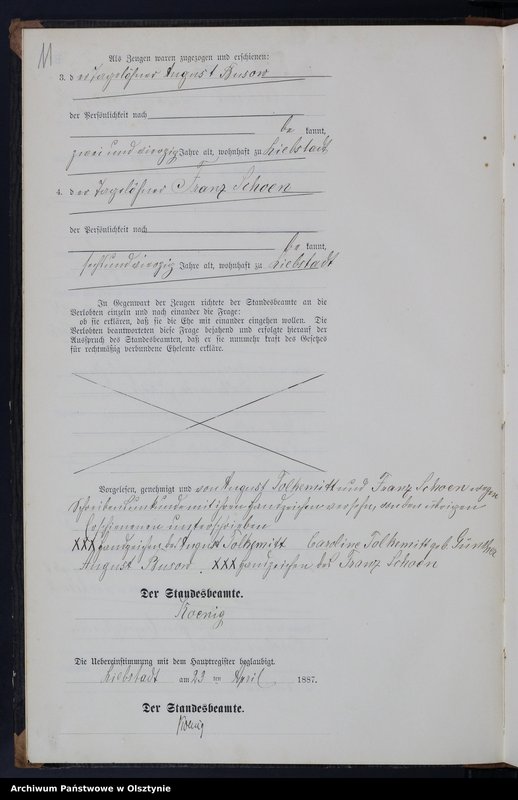 11
Als Zeugen waren zugezogen und erschienen:
3. der Tagelöhner August Rusow
der Persönlichkeit nach
be kannt,
zwei und vierzig Jahre alt, wohnhaft zu Liebstadt,
4. der Tagelöhner Franz Schoen
der Persönlichkeit nach
be kannt,
sechsundvierzig Jahre alt, wohnhaft zu Liebstadt
In Gegenwart der Zeugen richtete der Standesbeamte an die
Verlobten einzeln und nach einander die Frage:
ob sie erklären, daß sie die Ehe mit einander eingehen wollen. Die
Verlobten beantworteten diese Frage bejahend und erfolgte hierauf der
Ausspruch des Standesbeamten, daß er sie nunmehr kraft des Gesetzes
für rechtmäßig verbundene Eheleute erkläre.
Vorgelesen, genehmigt und von August Tolkemitt und Franz Schoen wegen
Schreibensunkunde mit ihren Handzeichen versehen, von den übrigen
Erschienenen unterschrieben
XXX Handzeichen des August Tolkemitt Caroline Tolkemitt geb. Günther
August Rusow XXX Handzeichen des Franz Schoen
Der Standesbeamte.
Koenig
Die Uebereinstimmung mit dem Hauptregister beglaubigt.
Liebstadt am 23 ten April 1887.
Der Standesbeamte.
Koenig
Archiwum Państwowe w Olsztynie